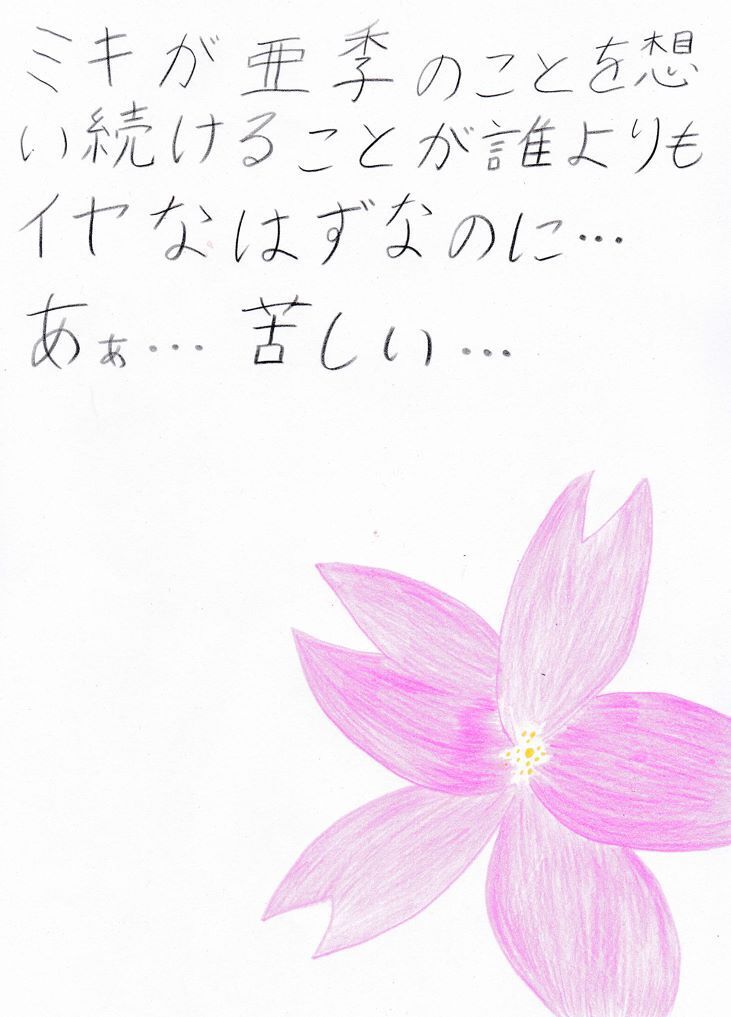 ミキが亜季のことを想
い続けることが誰よりも
イヤなはずなのに…
あぁ… 苦しい…